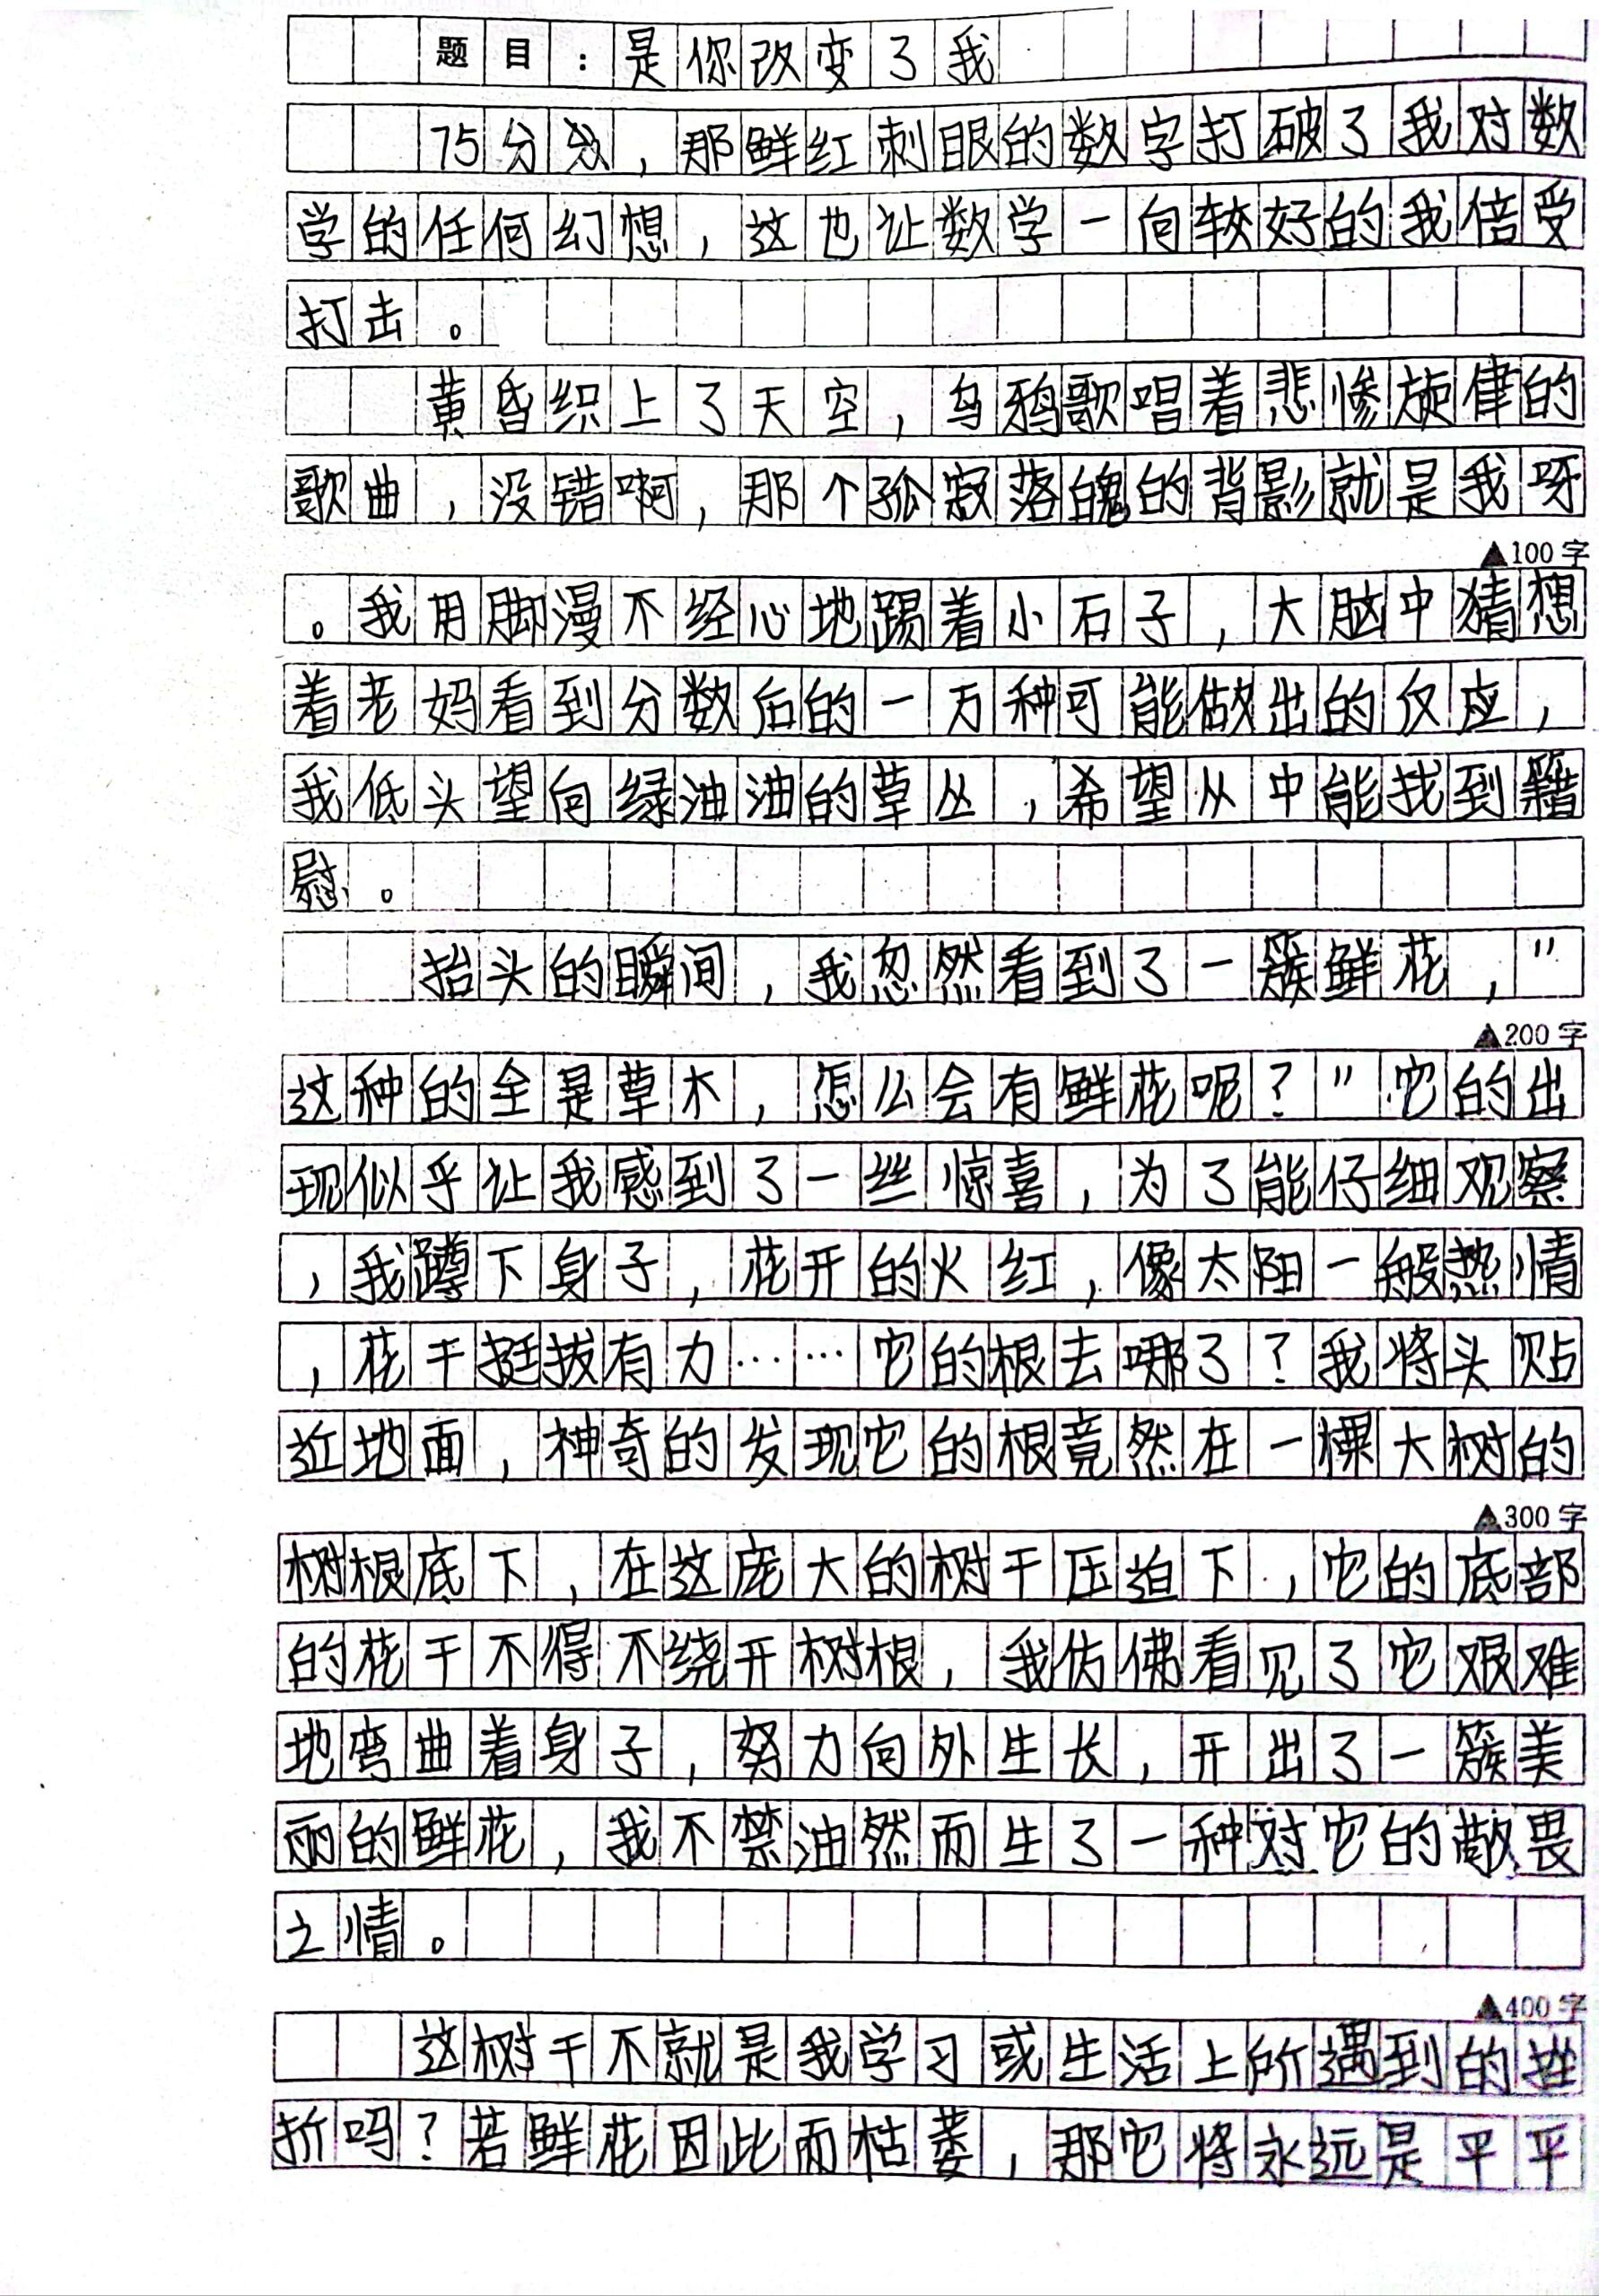 题目：是你改变了我
75分，那鲜红刺眼的数字打破了我对数
学的任何幻想，这也让数学一向较好的我倍受
打击。
黄昏织上了天空，乌鸦歌唱着悲惨旋律的
歌曲，没错啊，那个孤寂落魄的背影就是我呀
▲100字
。我用脚漫不经心地踢着小石子，大脑中猜想
着老妈看到分数后的一万种可能做出的反应，
我低头望向绿油油的草丛，希望从中能找到籍
慰。
抬头的瞬间，我忽然看到了一簇鲜花，"
▲200字
这种的全是草木，怎么会有鲜花呢？"它的出
现似乎让我感到了一丝惊喜，为了能仔细观察
，我蹲下身子，花开的火红，像太阳一般热情
，花干挺拔有力……它的根去哪了？我将头贴
近地面，神奇的发现它的根竟然在一棵大树的
▲300字
树根底下，在这庞大的树干压迫下，它的底部
的花干不得不绕开树根，我仿佛看见了它艰难
地弯曲着身子，努力向外生长，开出了一簇美
丽的鲜花，我不禁油然而生了一种对它的敬畏
之情。
▲400字
这树干不就是我学习或生活上所遇到的挫
折吗？若鲜花因此而枯萎，那它将永远是平平